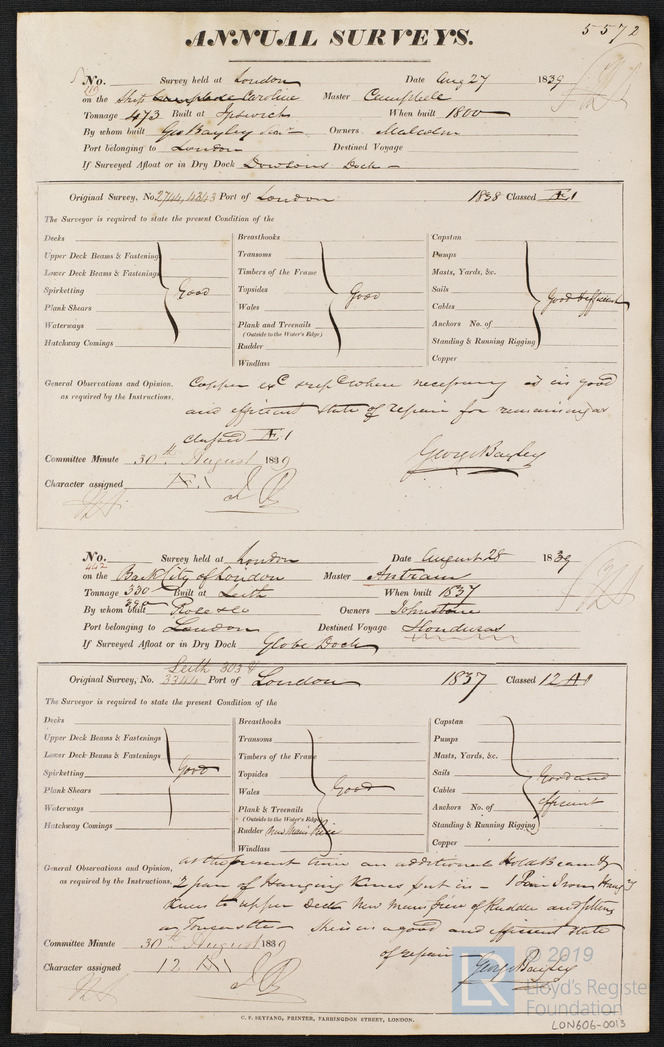 5572
ANNUAL SURVEYS.
No. Survey held at London Date Aug 27 1839
on the Ship Caroline Master Campbell
Tonnage 473 Built at Ipswich When built 1800
By whom built Geo Bayley Senr Owners Malcolm
Port belonging to London Destined Voyage
If Surveyed Afloat or in Dry Dock Dowsons Dock
Original Survey, No. 2744, 4343 Port of London 1838 Classed Æ1
The Surveyor is required to state the present Condition of the
Decks Breasthooks Capstan
Upper Deck Beams & Fastening Transoms Pumps
Lower Deck Beams & Fastenings Timbers of the Frame Masts, Yards, &c.
Spirketting Good Topsides Sails
Plank Shears Wales Good Cables Good & efficient
Waterways Plank and Treenails Anchors No. of
(Outside to the Water's Edge)
Hatchway Comings Rudder Standing & Running Rigging
Windlass Copper
General Observations and Opinion, Copper exc repd where necessary is in good
as required by the Instructions. and efficient state of repair for remaining as
classed Æ1
Committee Minute 30th August 1839 George Bayley
Character assigned Æ1
No. 442 Survey held at London Date August 28 1839
on the Bark City of London Master Antram
Tonnage 330 Built at Leith When built 1837
390
By whom built Rose & Co Owners Johnstone
Port belonging to London Destined Voyage Honduras
If Surveyed Afloat or in Dry Dock Globe Dock
Leith 303 &
Original Survey, No. 3344 Port of London 1837 Classed 12 A1
The Surveyor is required to state the present Condition of the
Decks Breasthooks Capstan
Upper Deck Beams & Fastenings Transoms Pumps
Lower Deck Beams & Fastenings Timbers of the Frame Masts, Yards, &c.
Spirketting Good Topsides Sails Good and
Plank Shears Wales Good Cables
Waterways Plank & Treenails Anchors No. of efficient
(Outside to the Water's Edge)
Hatchway Comings Rudder New Main Piece Standing & Running Rigging
Windlass Copper
General Observations and Opinion, at the present time an additional Hold Beam &
as required by the Instructions. 2 pair of Hanging Knees put in - 1 Pair Iron Hangg
Knees to upper Deck New Main piece of Rudder and fitting
She is in a good and efficient state
Committee Minute 30th August 1839 of repair
Character assigned 12 A1 George Bayley
© 2019
Lloyd's Register
Foundation
LR
LON606-0013
C. F. SEYFANG, PRINTER, FARRINGDON STREET, LONDON.